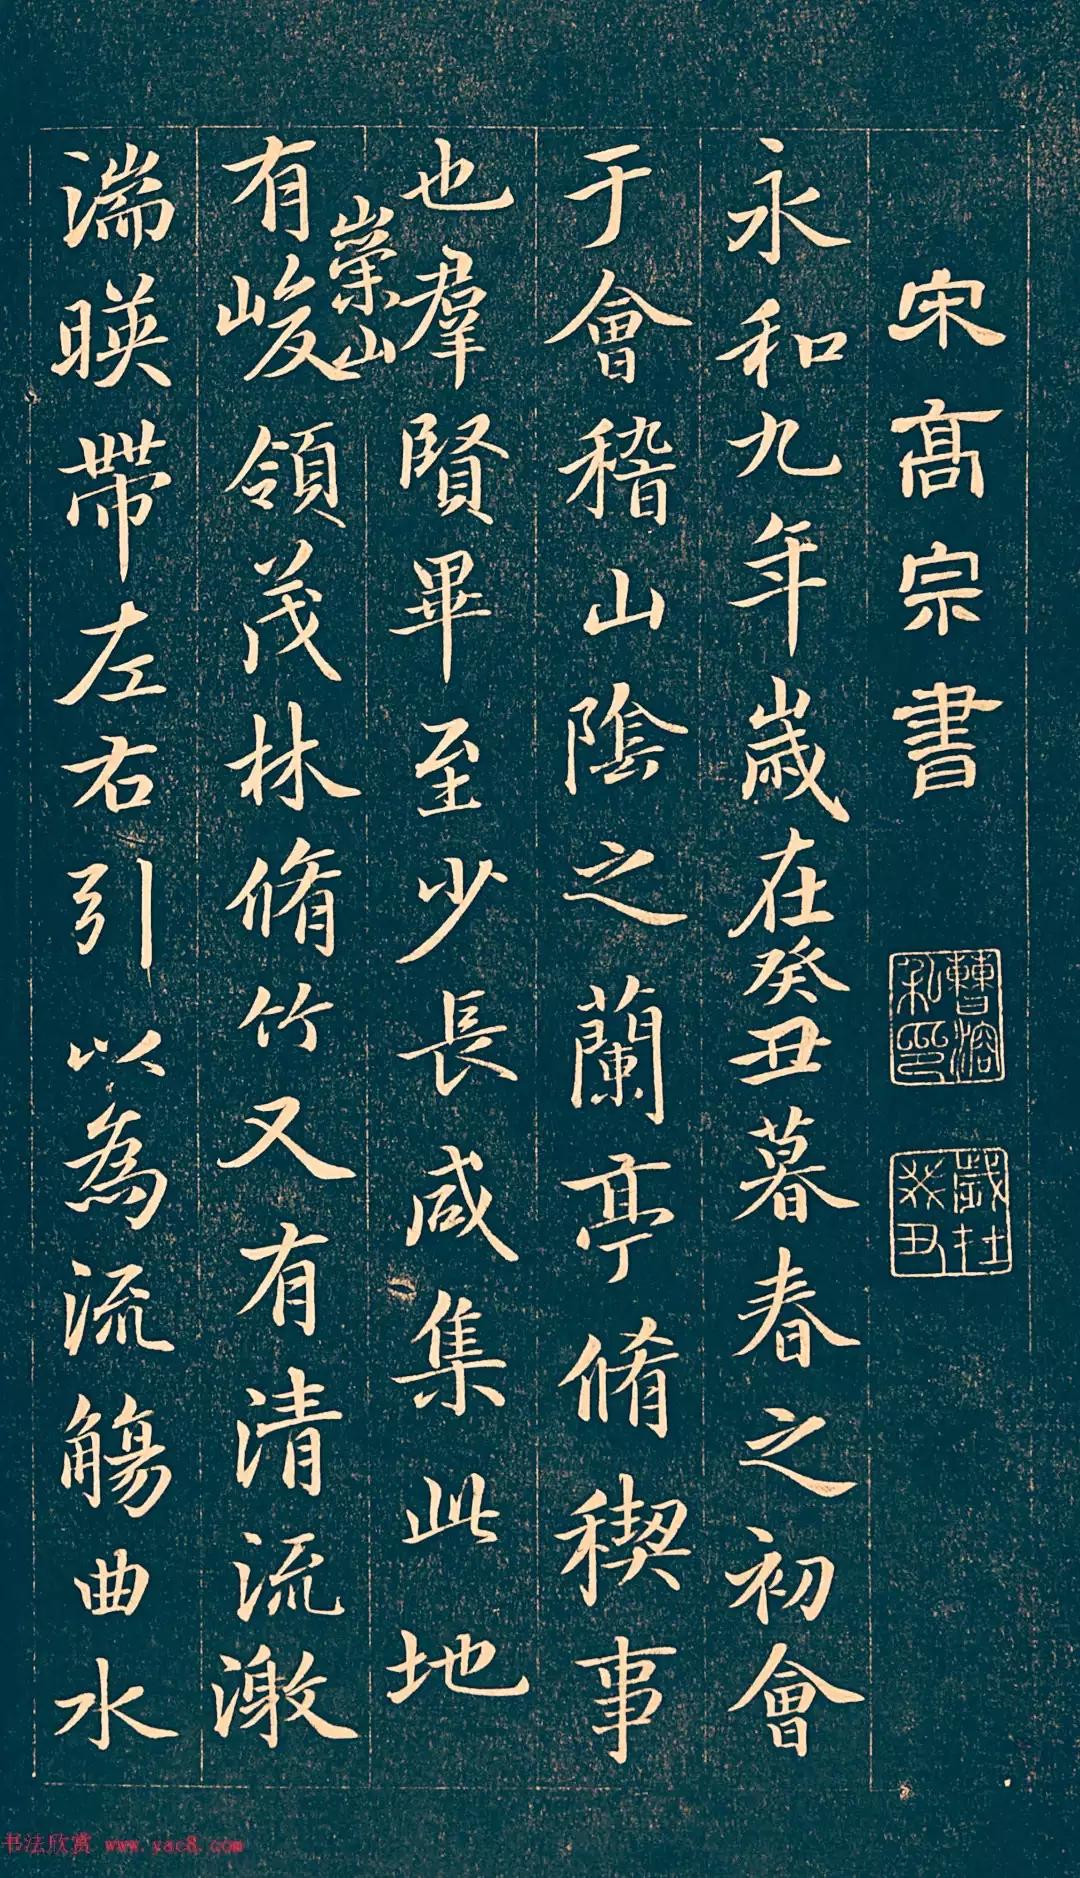 宋高宗書
曹溶私印
歲在癸丑
永和九年歲在癸丑暮春之初會
于會稽山陰之蘭亭脩稧事
也羣賢畢至少長咸集此地
有崇山峻領茂林脩竹又有清流激
湍暎帶左右引以為流觴曲水
书法欣赏 www.yac8.com